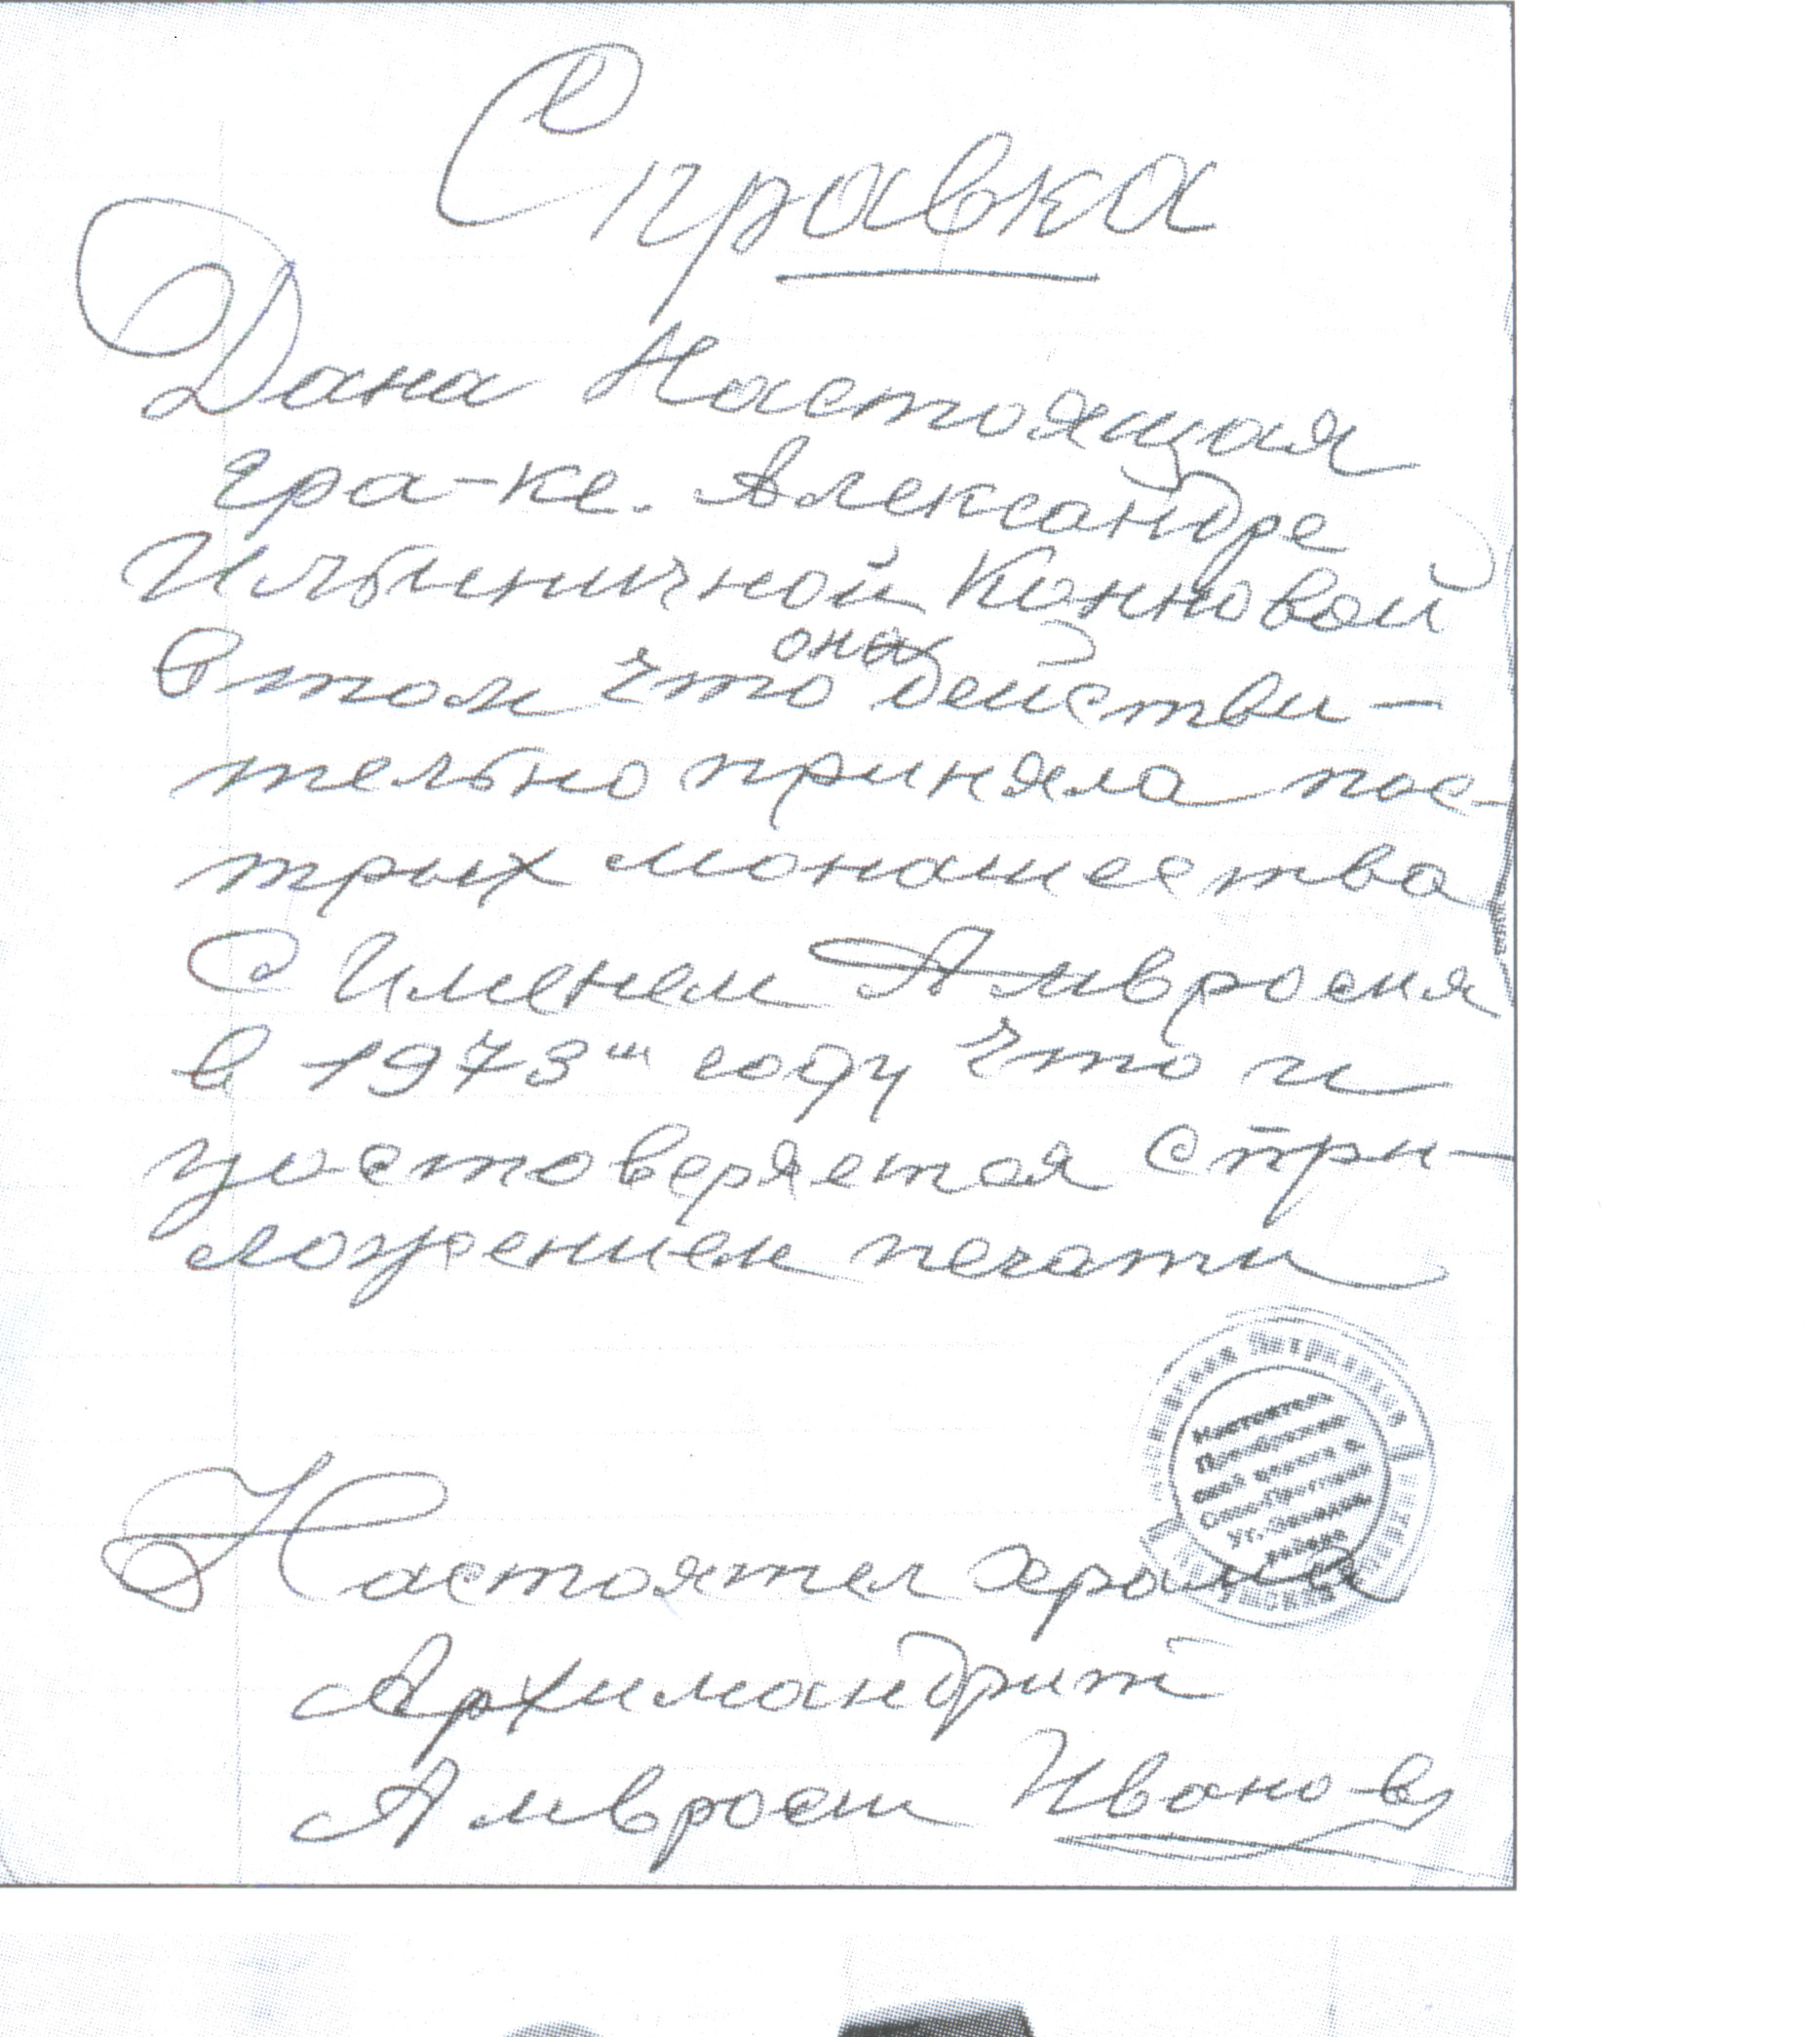 Справка
Дана Настоящая
гра-ке. Александре
Ильиничной Конновой
в том что она действи-
тельно приняла пос-
трых монашества
С Именем Амвросия
в 1973ш году что и
удостоверяется с при-
ложением печати
Настоятел храма
Архимандрит
Амвроси Иванов